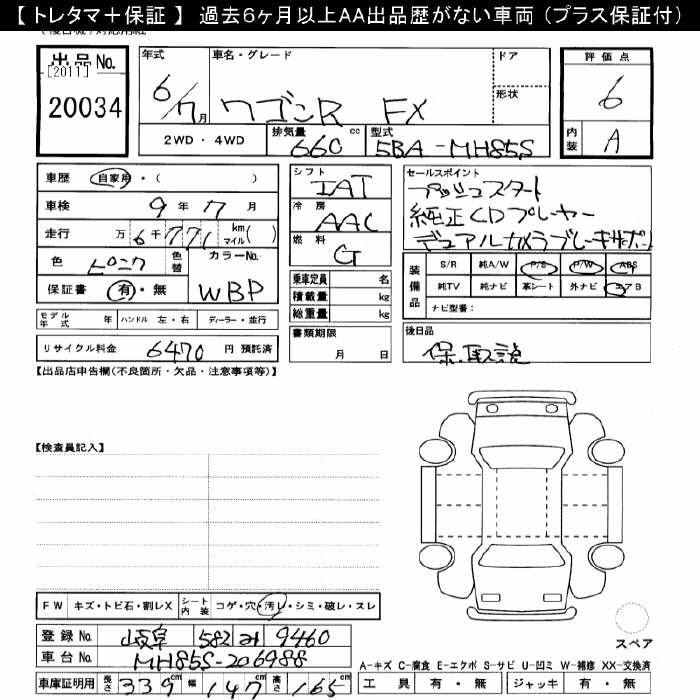 【トレタマ＋保証】 過去6ヶ月以上AA出品歴がない車両（プラス保証付）
出品No. [2011] 20034
年式 6/7月
車名・グレード ワゴンR FX
ドア
形状
評価点 6
内装 A
2WD・4WD
排気量 660 cc
型式 5BA-MH85S
車歴 自家用・( )
車検 9年7月
走行 万6千771 km マイル( )
色 ピンク 色替
カラーNo. WBP
保証書 有・無
モデル年式 年 ハンドル 左・右 ディーラー・並行
リサイクル料金 6470 円 預託済
シフト IAT
冷房 AAC
燃料 G
乗車定員 名
積載量 kg
総重量 kg
書類期限 月 日
セールスポイント
プッシュスタート
純正CDプレーヤー
デュアルカメラブレーキサポート
装備品 S/R 純A/W P/S P/W ABS
純TV 純ナビ 革シート 外ナビ エアB
ナビ型番:
後日品
保.取説
【出品店申告欄(不良箇所・欠品・注意事項等)】
【検査員記入】
FW キズ・トビ石・割レX シート内装 コゲ・穴・汚レ・シミ・破レ・スレ
登録No. 岐阜 582 み 9460
車台No. MH85S-206988
車庫証明用 長さ 339cm 幅 147cm 高さ 165cm
スペア
A-キズ C-腐食 E-エクボ S-サビ U-凹ミ W-補修 XX-交換済
工具 有・無 ジャッキ 有・無